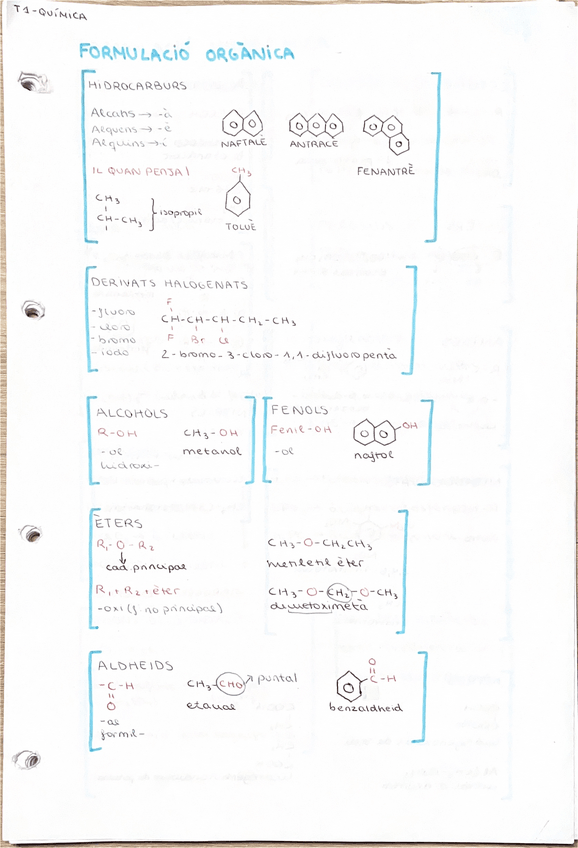 T1-QUÍMICA
FORMULACIÓ ORGÀNICA
HIDROCARBURS
Alcans → -à
Alquens → -è
Alquins → -í
NAFTALÈ
ANTRACÈ
FENANTRÈ
IL QUAN PENJA!
CH3
CH-CH3
isopropil
CH3
TOLUÈ
DERIVATS HALOGENATS
-fluoro
-cloro
-bromo
-iodo
F
CH-CH-CH-CH2-CH3
F Br Cl
2-bromo-3-cloro-1,1-difluoropentà
ALCOHOLS
R-OH
CH3-OH
-ol
metanol
hidroxi-
FENOLS
Fenil-OH
OH
-ol
naftol
ÈTERS
R1-O-R2
cad principal
R1+R2+èter
-oxi (f no principal)
CH3-O-CH2CH3
metiletil èter
CH3-O-CH2-O-CH3
dimetoximetà
ALDHEIDS
-C-H
O
-al
formil-
CH3-CHO
puntal
etanal
O
C-H
benzaldheid